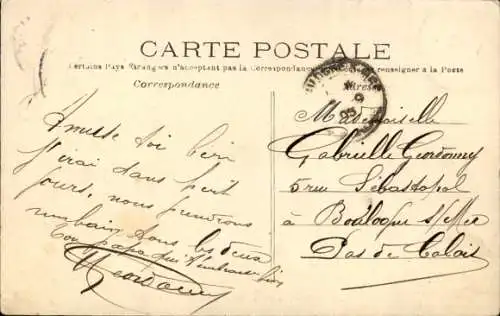 CARTE POSTALE
Certains Pays Etrangers n'acceptent pas la Correspondance renseigner à la Poste
Correspondance
Adresse
Amuse toi bien
J'irai dans huit
jours, nous prendrons
un bain tous les deux
Ton papa qui t'embrasse bien
Mademoiselle
Gabrielle
5 rue Sébastopol
à Boulogne s/Mer
Pas de Calais